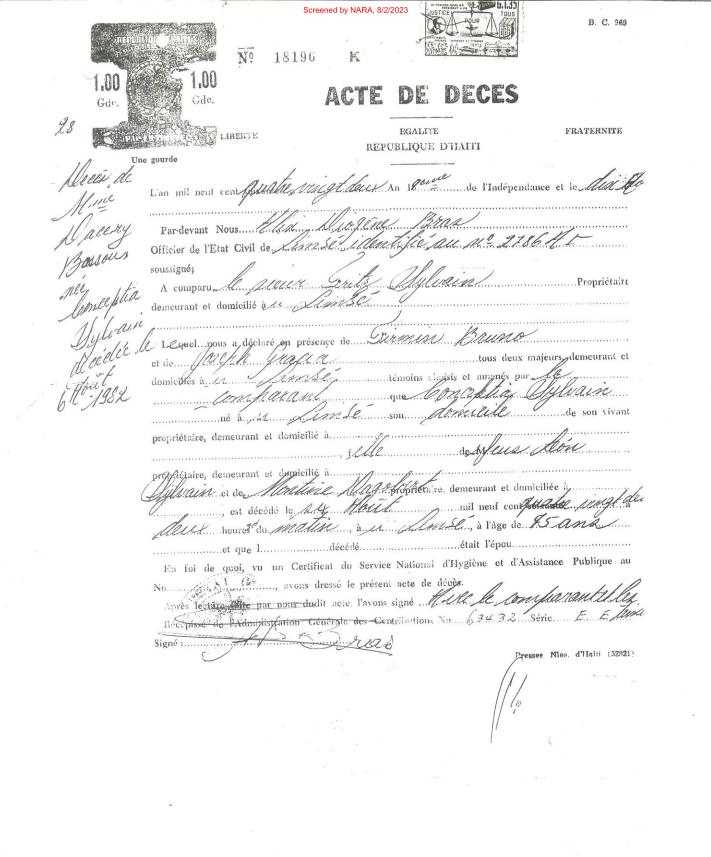 Screened by NARA, 8/2/2023
B. C. 969
6.1.35
JUSTICE POUR TOUS
REPUBLIQUE
No 18196 K
1.00 1.00
Gde. Gde.
ACTE DE DECES
28
LIBERTE EGALITE FRATERNITE
REPUBLIQUE D'HAITI
Une gourde
Décès de
Mme
Bossous
née
Conceptia
Sylvain
décédée le
6 Août
1982
L'an mil neuf cent quatre vingt deux An de l'Indépendance et le
Par-devant Nous Diogène Bras
Officier de l'Etat Civil de Limbé identifié au no 2786
soussigné;
A comparu le sieur Fritz Sylvain Propriétaire
demeurant et domicilié à Limbé
Lequel nous a déclaré en présence de Firmin Bruno
et de Joseph tous deux majeurs, demeurant et
domiciliés à Limbé témoins choisis et amenés par le
comparant que Conceptia Sylvain
né à Limbé son domicile de son vivant
propriétaire, demeurant et domicilié à
, fille de feus Léon
propriétaire, demeurant et domicilié à
Sylvain et de propriétaire, demeurant et domicilié à
, est décédé le six Août mil neuf cent quatre vingt de
deux heures du matin, à Limbé, à l'âge de 45 ans
et que l décédé était l'épou
En foi de quoi, vu un Certificat du Service National d'Hygiène et d'Assistance Publique au
No , avons dressé le présent acte de décès.
Après lecture faite par nous dudit acte, l'avons signé Avec le comparant et les
Récépissé de l'Administration Générale des Contributions No 63432 Série E. E
Signé: Bras
Presses Nles. d'Haiti (52821)